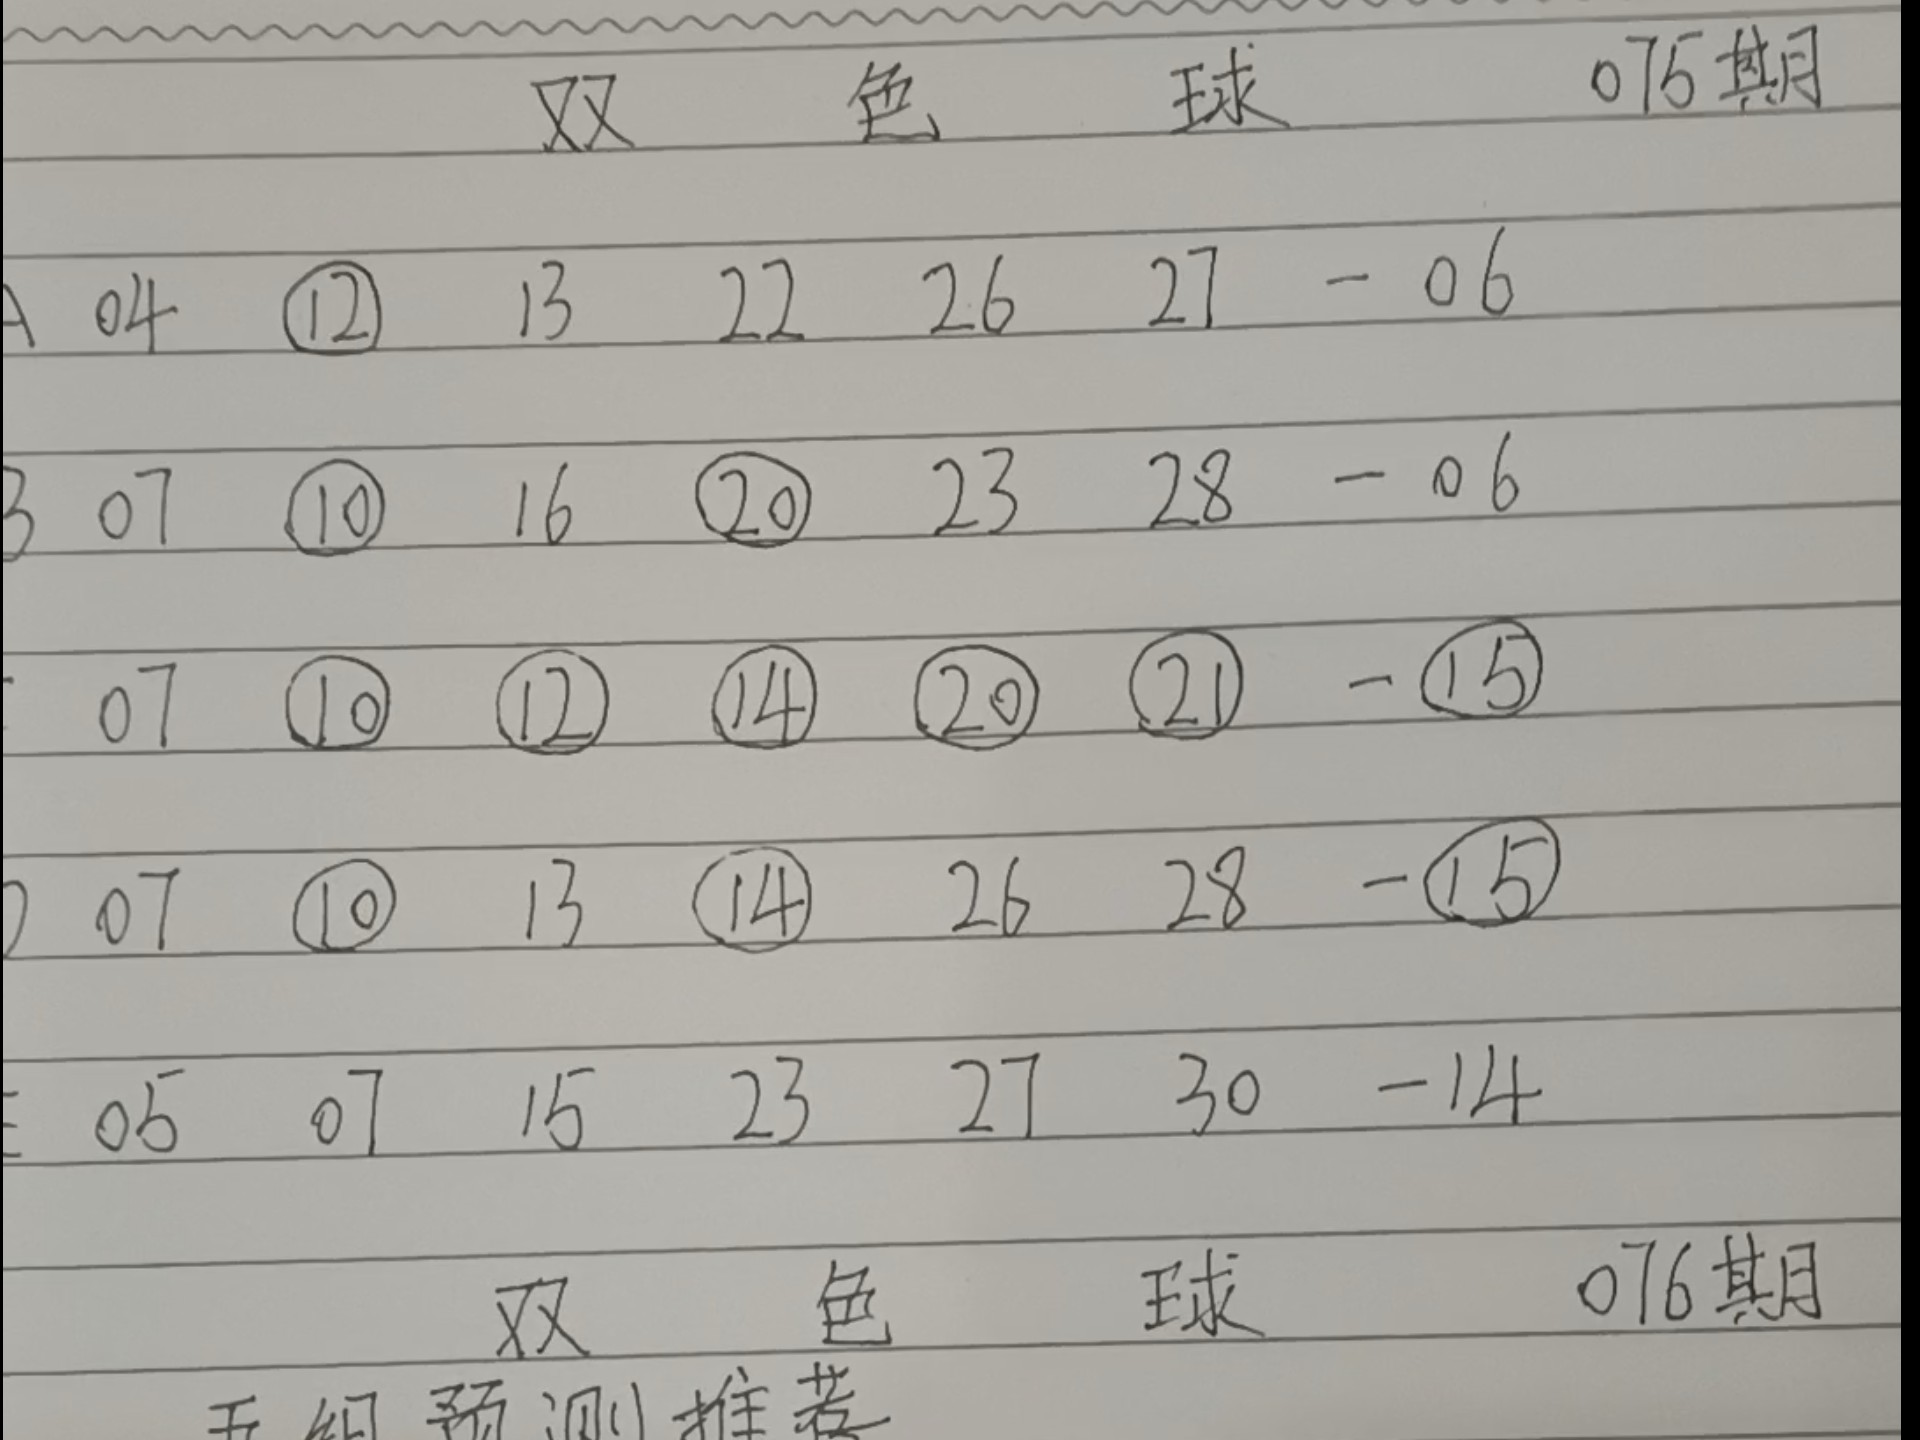 双 色 球 075期
A 04 ⑫ 13 22 26 27 - 06
B 07 ⑩ 16 ⑳ 23 28 - 06
07 ⑩ ⑫ ⑭ ⑳ ㉑ - ⑮
D 07 ⑩ 13 ⑭ 26 28 - ⑮
E 05 07 15 23 27 30 - 14
双 色 球 076期
五组预测推荐